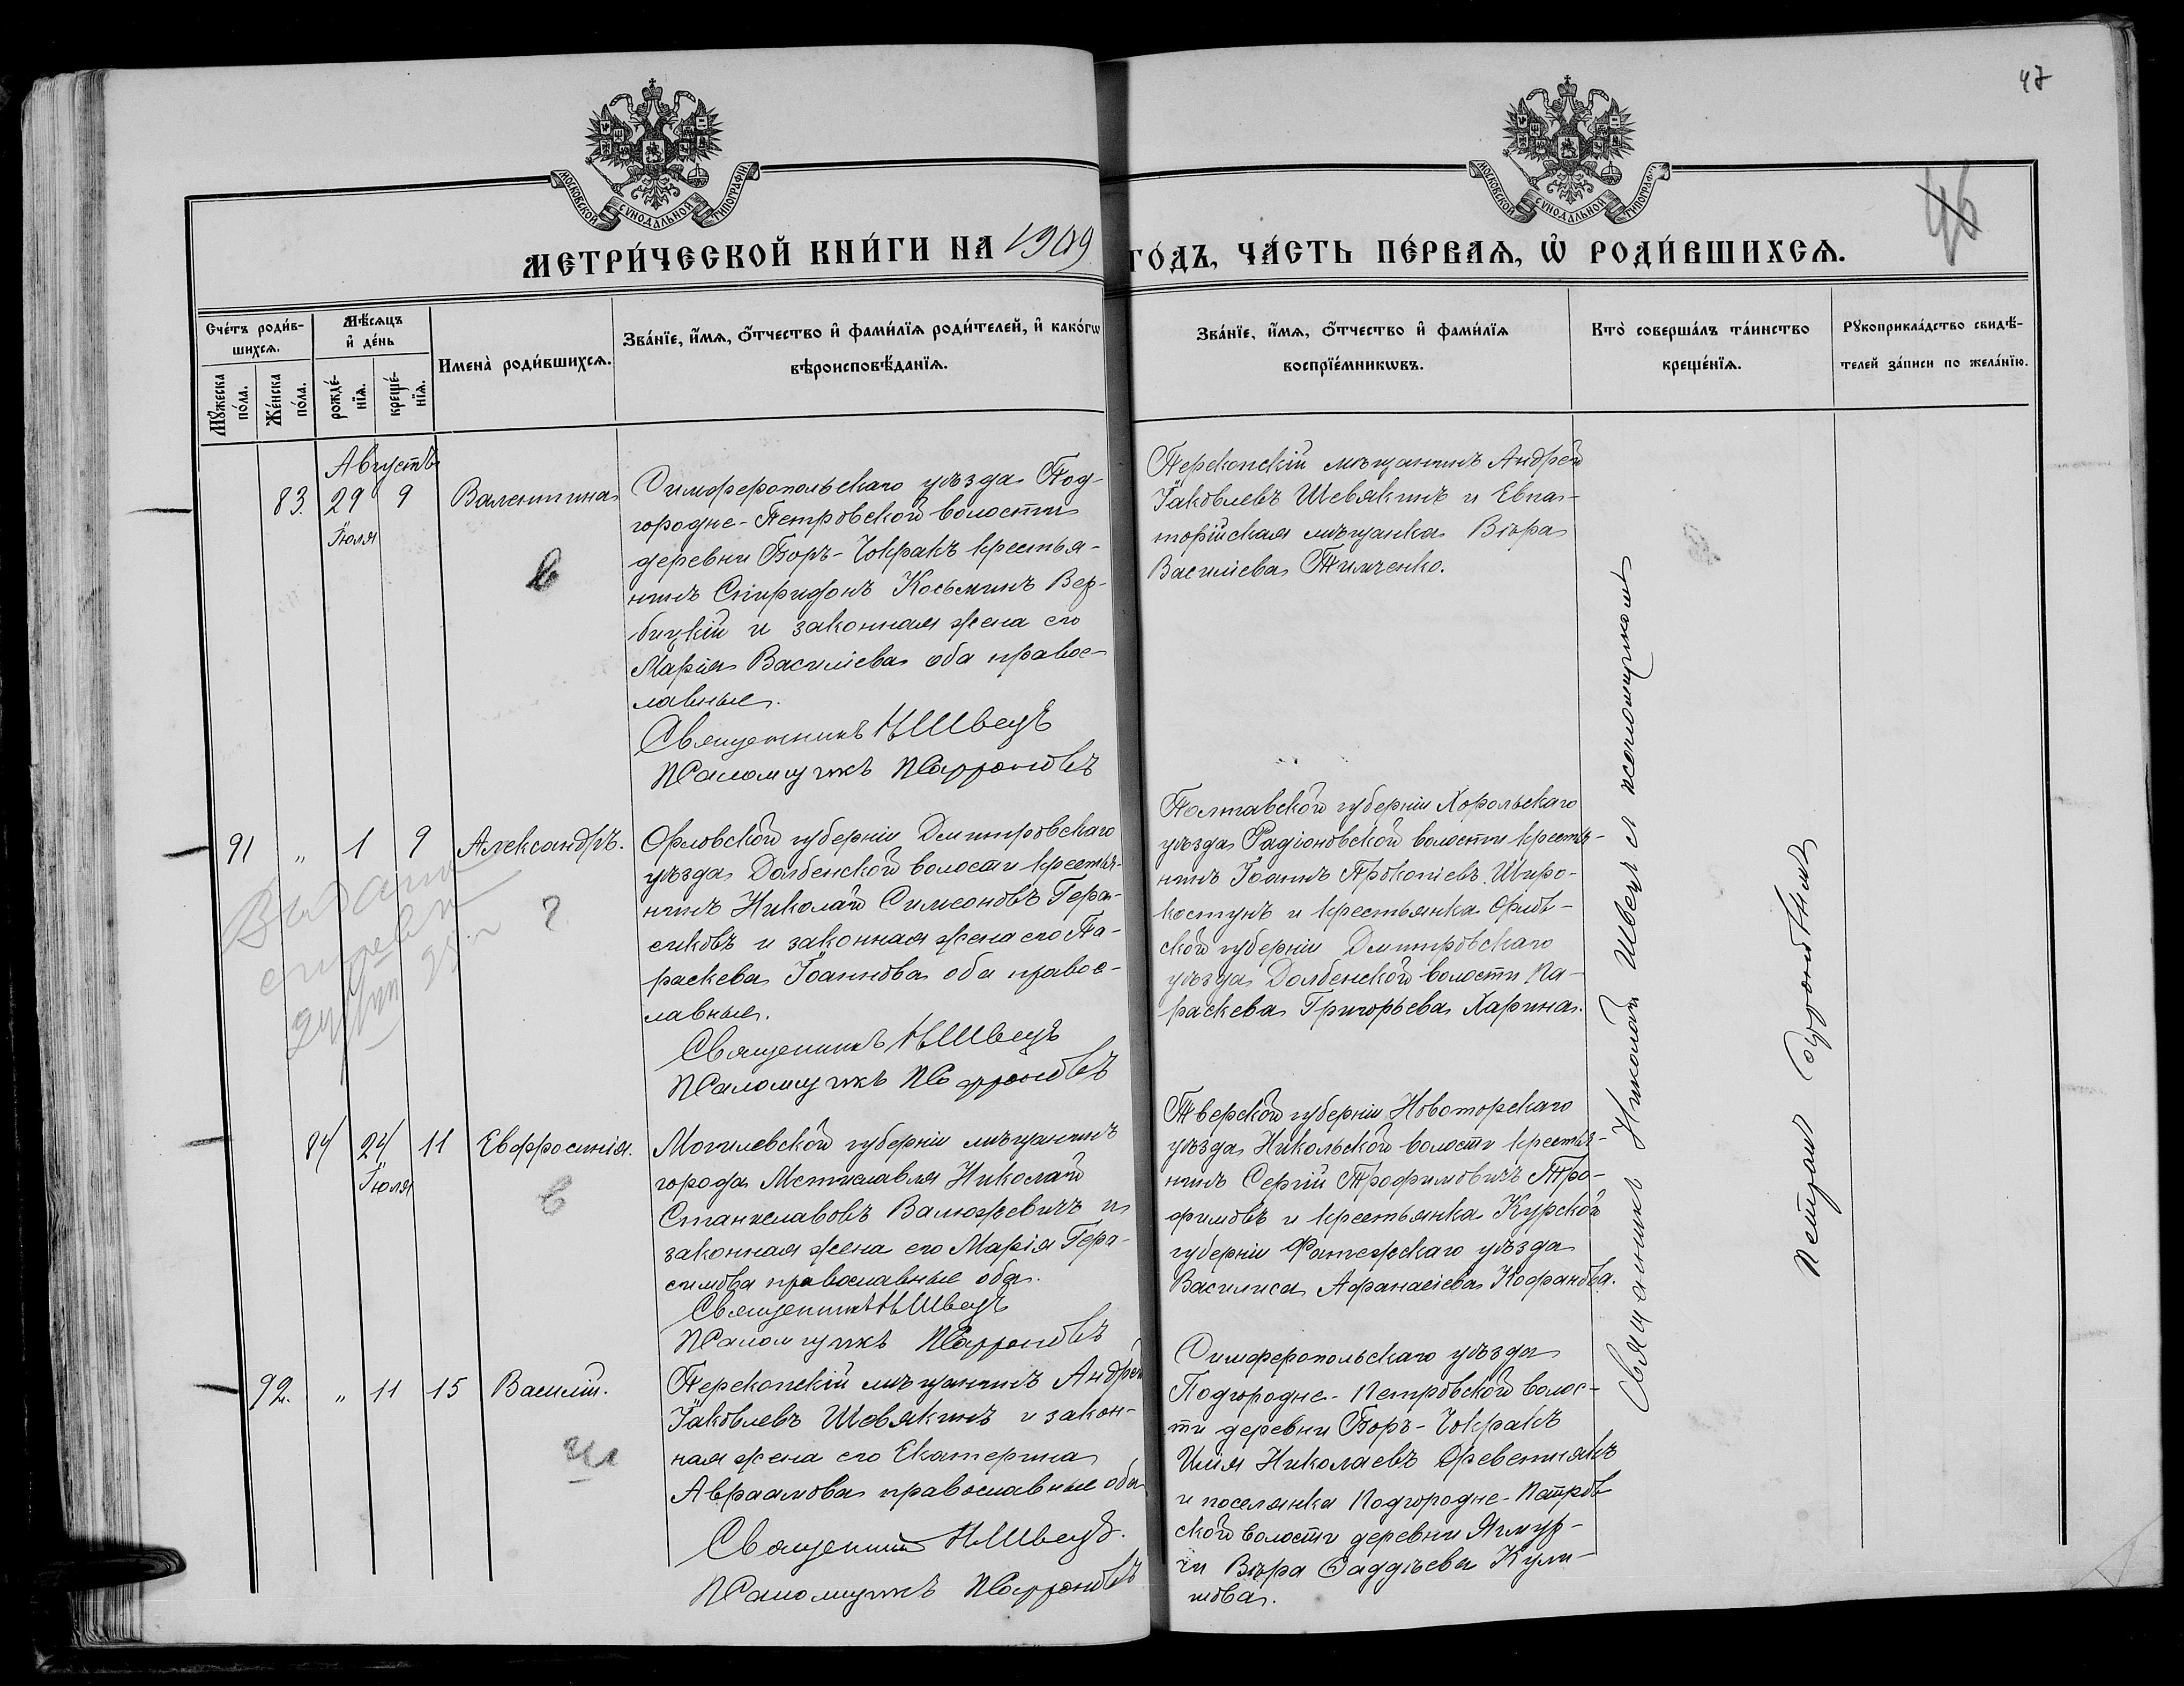 47
46
МОСКОВСКОЙ СѴНОДАЛЬНОЙ ТИПОГРАФІИ
МОСКОВСКОЙ СѴНОДАЛЬНОЙ ТИПОГРАФІИ
МЕТРИ́ЧЕСКОЙ КНИ́ГИ НА 1909 ГО́ДЪ, ЧА́СТЬ ПЕ́РВАѦ, Ѽ РОДИ́ВШИХСѦ.
Сче́тъ роди́в-
шихсѧ.
Мꙋ́жеска
по́ла.
Же́нска
по́ла.
Мѣ́сѧцъ
и҆ де́нь
рожде́-
нїѧ.
креще́-
нїѧ.
И҆мена̀ роди́вшихсѧ.
Зва́нїе, и҆́мѧ, ѻ҆́тчество и҆ фами́лїѧ роди́телей, и҆ како́гѡ
вѣроисповѣ́данїѧ.
Зва́нїе, и҆́мѧ, ѻ҆́тчество и҆ фами́лїѧ
воспрїе́мникѡвъ.
Кто̀ соверша́лъ та́инство
креще́нїѧ.
Рꙋкоприкла́дство свидѣ́-
телей за́писи по жела́нїю.
Августъ
83. 29 9 Валентина
Іюля
в
Симферопольскаго уѣзда Под-
городне-Петровской волости
деревни Боръ-Чокракъ крестья-
нинъ Спиридонъ Косьминъ Вер-
бицкій и законная жена его
Марія Василіева оба правос-
лавные.
Священникъ Н Швецъ
Псаломщикъ П Софроновъ
Перекопскій мѣщанинъ Андрей
Іаковлевъ Шевякинъ и Евпа-
торійская мѣщанка Вѣра
Василіева Тимченко.
91 " 1 9 Александръ.
2
Орловской губерніи Дмитровскаго
уѣзда Долбенской волости крестья-
нинъ Николай Симеоновъ Гера-
сиковъ и законная жена его Па-
раскева Іоаннова оба правос-
лавные.
Священникъ Н Швецъ
Псаломщикъ П Софроновъ
Полтавской губерніи Хорольскаго
уѣзда Радіоновской волости крестья-
нинъ Іоаннъ Прокопіевъ Широ-
костунъ и крестьянка Орлов-
ской губерніи Дмитровскаго
уѣзда Долбенской волости Па-
раскева Григорьева Харина.
84 24 11 Евфросинія.
Іюля
в
Могилевской губерніи мѣщанинъ
города Мстиславля Николай
Станиславовъ Валюжевичъ и
законная жена его Марія Гера-
симова православные оба.
Священникъ Н Швецъ
Псаломщикъ П Софроновъ
Тверской губерніи Новоторскаго
уѣзда Никольской волости крестья-
нинъ Сергій Трофимовичъ Тро-
фимовъ и крестьянка Курской
губерніи Фатежскаго уѣзда
Василиса Афанасіева Кофанова.
92. " 11 15 Василій.
Перекопскій мѣщанинъ Андрей
Іаковлевъ Шевякинъ и закон-
ная жена его Екатерина
Авраамова православные оба
Священникъ Н Швецъ.
Псаломщикъ П Софроновъ
Симферопольскаго уѣзда
Подгородне-Петровской волос-
ти деревни Боръ-Чокракъ
Илія Николаевъ Древетнякъ
и поселянка Подгородне-Петров
ской волости деревни
Вѣра Фаддѣева Кули-
нова.
Священникъ Николай Швецъ съ псаломщикомъ
Петромъ Софроновымъ